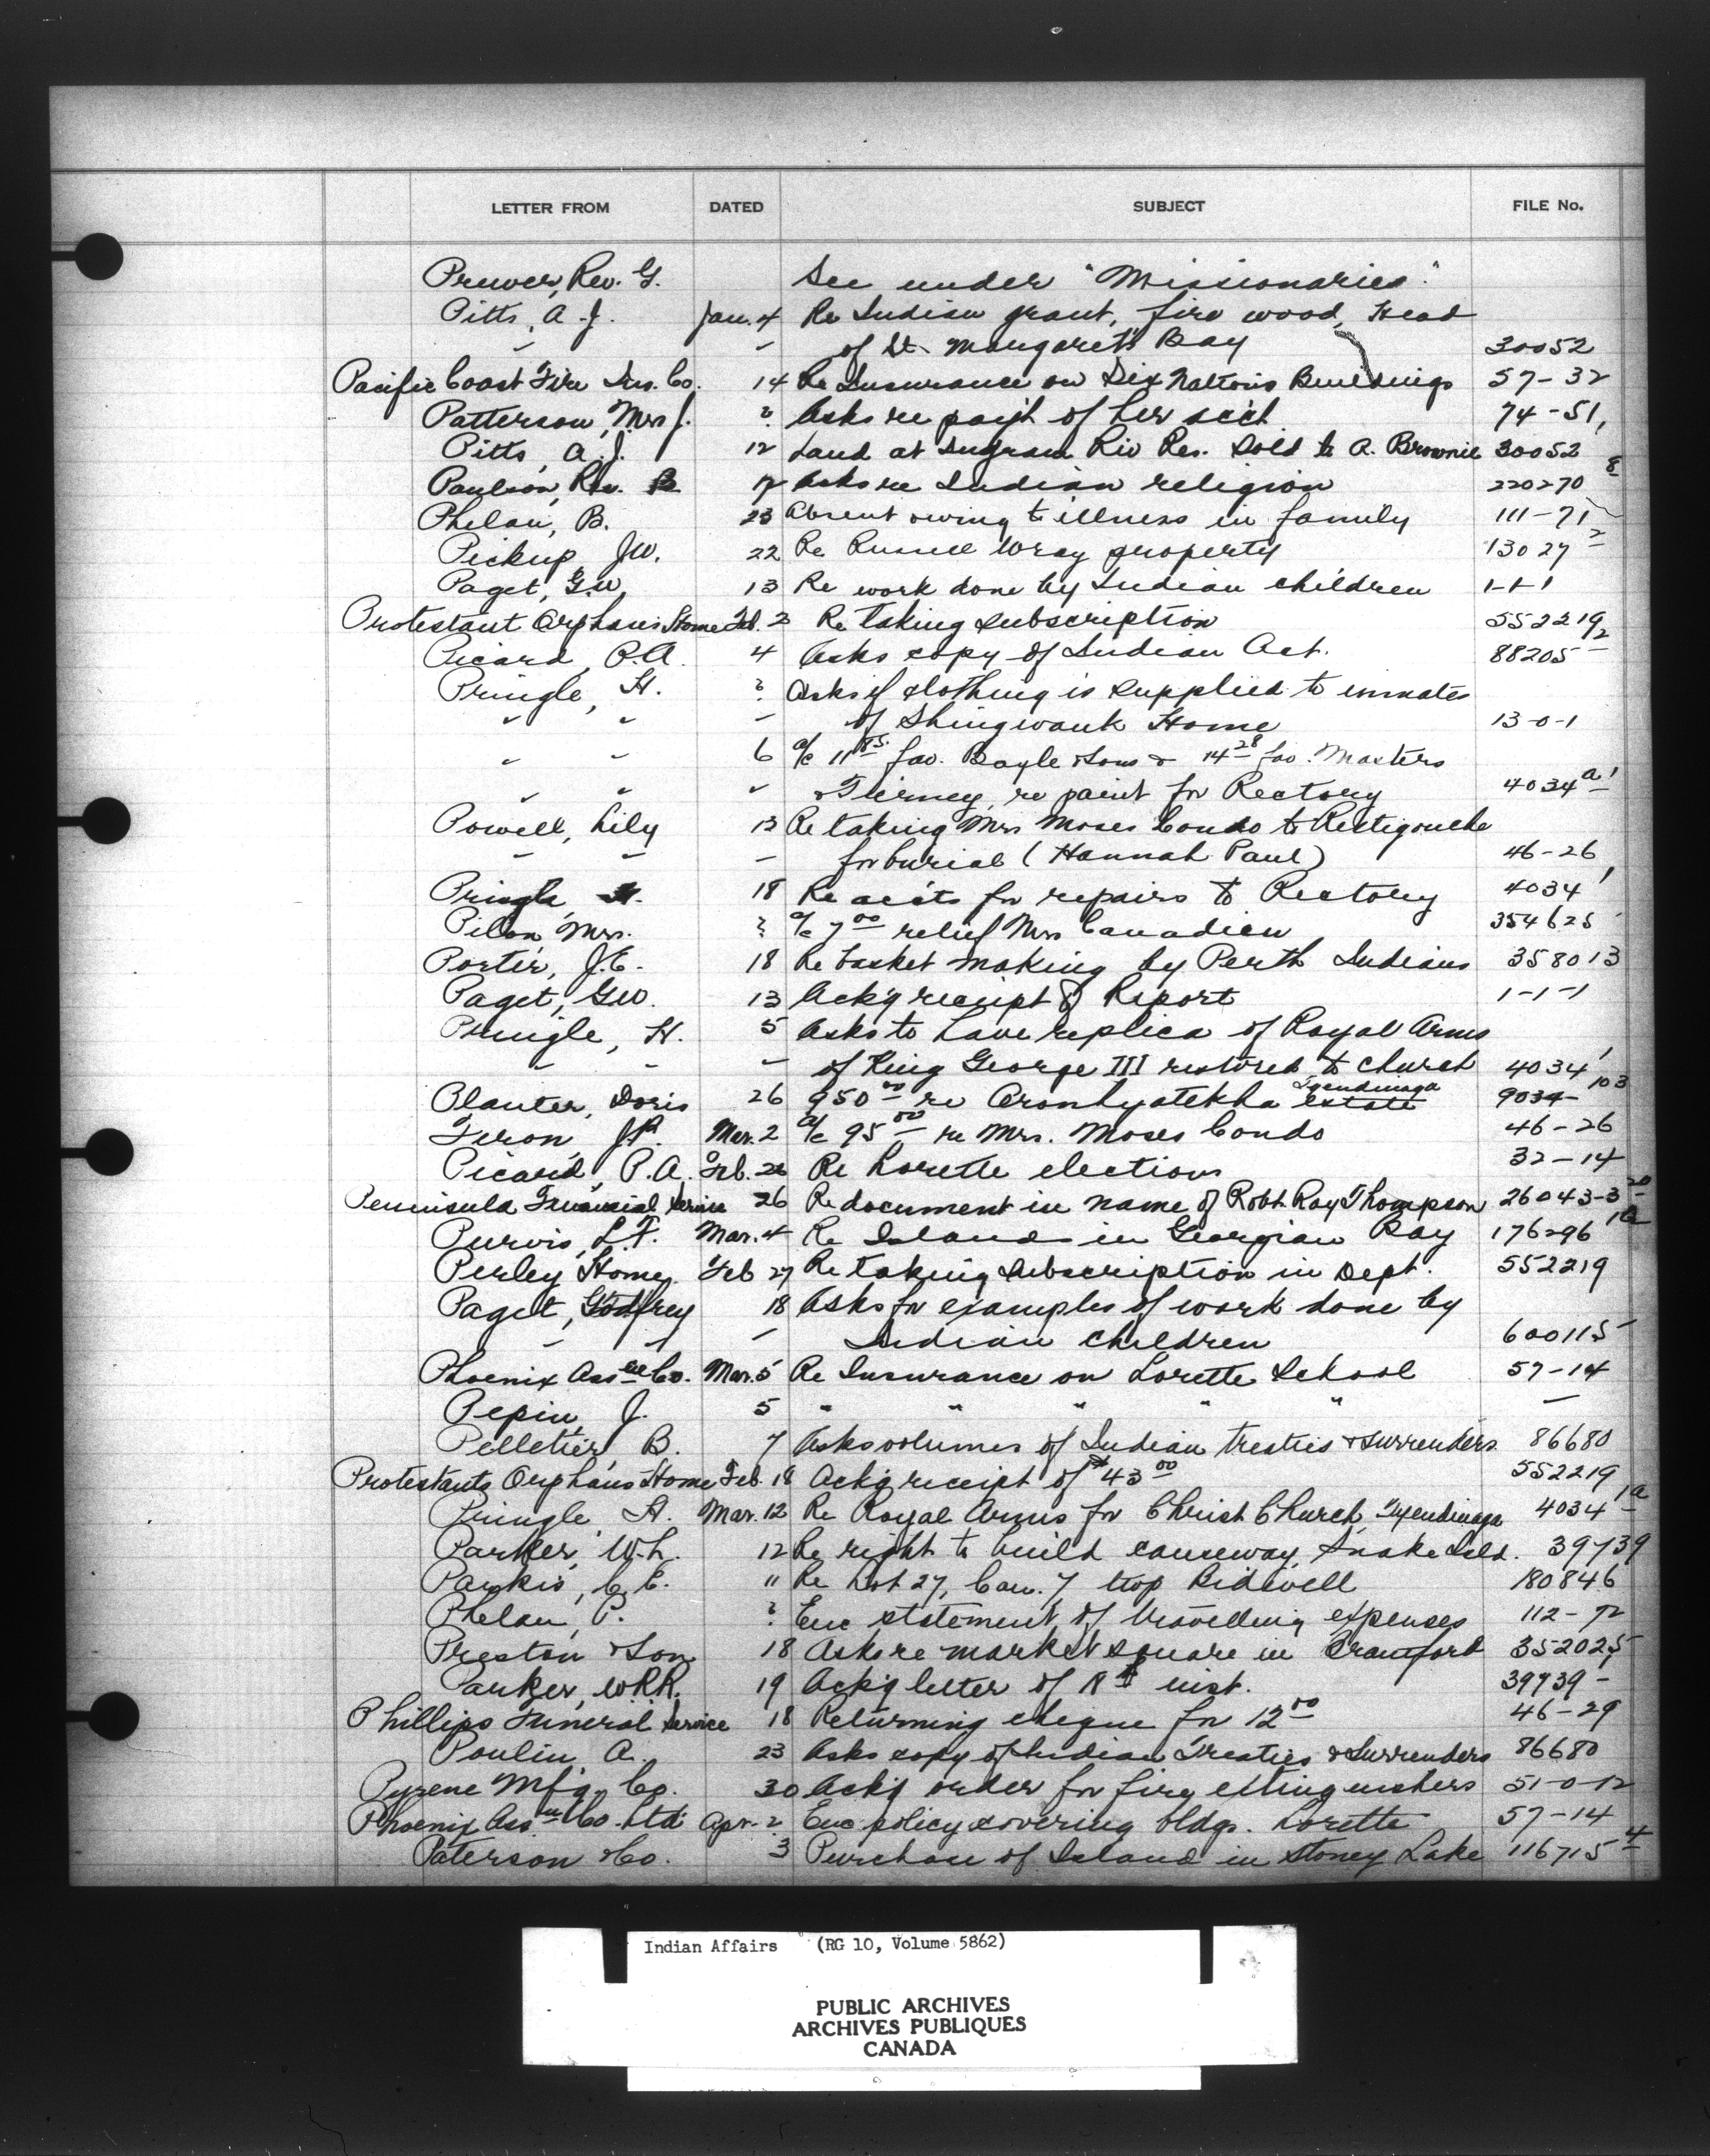 LETTER FROM DATED SUBJECT FILE No.
Prewer, Rev. G. See under "Missionaries"
Pitts, A. J. Jan. 4 Re Indian grant, fire wood, Head
" - of St. Margaret's Bay 30052
Pacific Coast Fire Ins. Co. 14 Re Insurance on Six Nations Buildings 57-32
Patterson, Mrs J. ? Asks re paym't of her acct 74-51,
Pitts, A. J. 12 Land at Ingram Riv Res. Sold to A. Brownie 30052
Paulson, Rev. B 17 Asks re Indian religion 220270 8
Phelan, B. 23 Absent owing to illness in family 111-71
Pickup, J.W. 22 Re Russell Wray property 13027 2
Paget, G.W. 13 Re work done by Indian children 1-1-1
Protestant Orphans Home Feb. 2 Re taking subscription 552219
Picard, P.A. 4 Asks copy of Indian Act. 88205 2
Pringle, H. ? Asks if clothing is supplied to inmates
" " - of Shingwauk Home 13-0-1
" " 6 a/c 11 85 fav. Boyle & Sons & 14 28 fav. Masters
" " " & Tierney, re paint for Rectory 4034 a1
Powell, Lily 12 Re taking Mrs Moses Condo to Restigouche
" " - for burial (Hannah Paul) 46-26
Pringle H. 18 Re acc'ts for repairs to Rectory 4034 1
Pilon, Mrs. ? a/c 7 00 relief Mrs Canadien 354625
Porter, J.E. 18 Re basket making by Perth Indians 358013
Paget, G.W. 13 Ack'g receipt of Report 1-1-1
Pringle, H. 5 Asks to have replica of Royal Arms
" " - of King George III restored to church 4034 1
Planter, Doris 26 950 00 re Oronhyatekha estate Tyendinaga 9034- 103
Feron, J.P. Mar. 2 a/c 95 00 re Mrs. Moses Condo 46-26
Picard, P.A. Feb. 26 Re Lorette elections 32-14
Peninsula Financial Service 26 Re document in name of Robt. Ray Thompson 26043-3 20
Purvis, L.F. Mar. 4 Re Islands in Georgian Bay 176296 1a
Perley Home, Feb 27 Re taking subscription in Dept. 552219
Paget, Godfrey 18 Asks for examples of work done by
" " - Indian children 600115
Phoenix Ass ce Co. Mar. 5 Re Insurance on Lorette School 57-14
Pepin, J. 5 " " " " " -
Pelletier, B. 7 Asks volumes of Indian treaties & surrenders 86680
Protestants Orphans Home Feb. 18 Ack'g receipt of $43 00 552219
Pringle, H. Mar. 12 Re Royal Arms for Christ Church, Tyendinaga 4034 1a
Parker, W.L. 12 Re right to build causeway, Snake Isld. 39739
Parkis, C.E. 11 Re Lot 27, Con. 7 twp Bidwell 180846
Phelan, P. ? Enc statement of travelling expenses 112-72
Preston & Son 18 Asks re market square in Brantford 352025
Parker, W.R.R. 19 Ack'g letter of 18th inst. 39739-
Phillips Funeral Service 18 Returning cheque for 12 00 46-29
Poulin, A. 23 Asks copy of Indian Treaties & Surrenders 86680
Pyrene Mf'g. Co. 30 Ack'g order for fire extinguishers 51-0-12
Phoenix Ass ce Co. Ltd. Apr. 2 Enc policy covering bldgs. Lorette 57-14
Paterson & Co. 3 Purchase of Island in Stoney Lake 116715 4
Indian Affairs (RG 10, Volume 5862)
PUBLIC ARCHIVES
ARCHIVES PUBLIQUES
CANADA